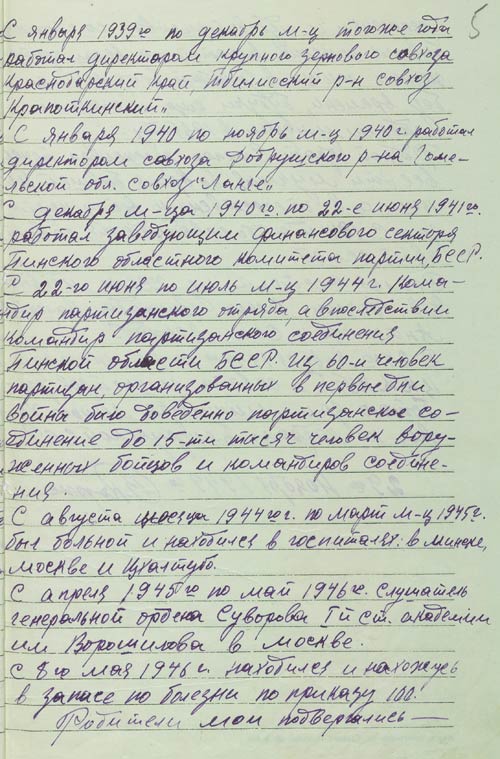 5
С января 1939го по декабрь м-ц тогоже года
работал директором крупного зернового совхоза
Краснодарский край, Тбилисский р-н совхоз
Крапоткинский"
С января 1940 по ноябрь м-ц 1940 г. работал
директором совхоза Добрушского р-на Гоме-
льской обл. совхоз "Ланге"
С декабря м-ца 1940го. по 22-е июня 1941го.
работал заведующим финансового сектора
Пинского областного комитета партии, БССР.
С 22-го июня по июль м-ц 1944 г. Кома-
ндир партизанского отряда, а впоследствии
командир партизанского соединения
Пинской области БССР. Из 60-и человек
партизан, организованных в первые дни
война было доведенно партизанское со-
единение до 15-ти тысяч человек воору-
женных бойцов и командиров соедине-
ния.
С августа месяца 1944го г. по март м-ц 1945г.
был больной и находился в госпиталях: в Минске,
Москве и Цхалтубо.
С апреля 1945го по май 1946 г. слушатель
генеральной ордена Суворова I й ст. академии
им Ворошилова в Москве.
С 8го мая 1946 г. находился и нахожусь
в запасе по болезни по приказу 100.
Родители мои подвергались —